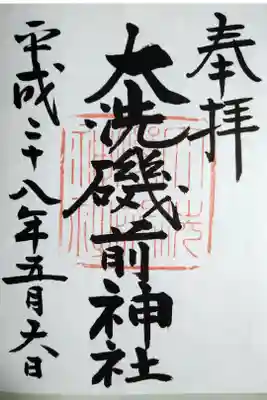 奉拝
大洗磯前神社
平成二十八年五月六日